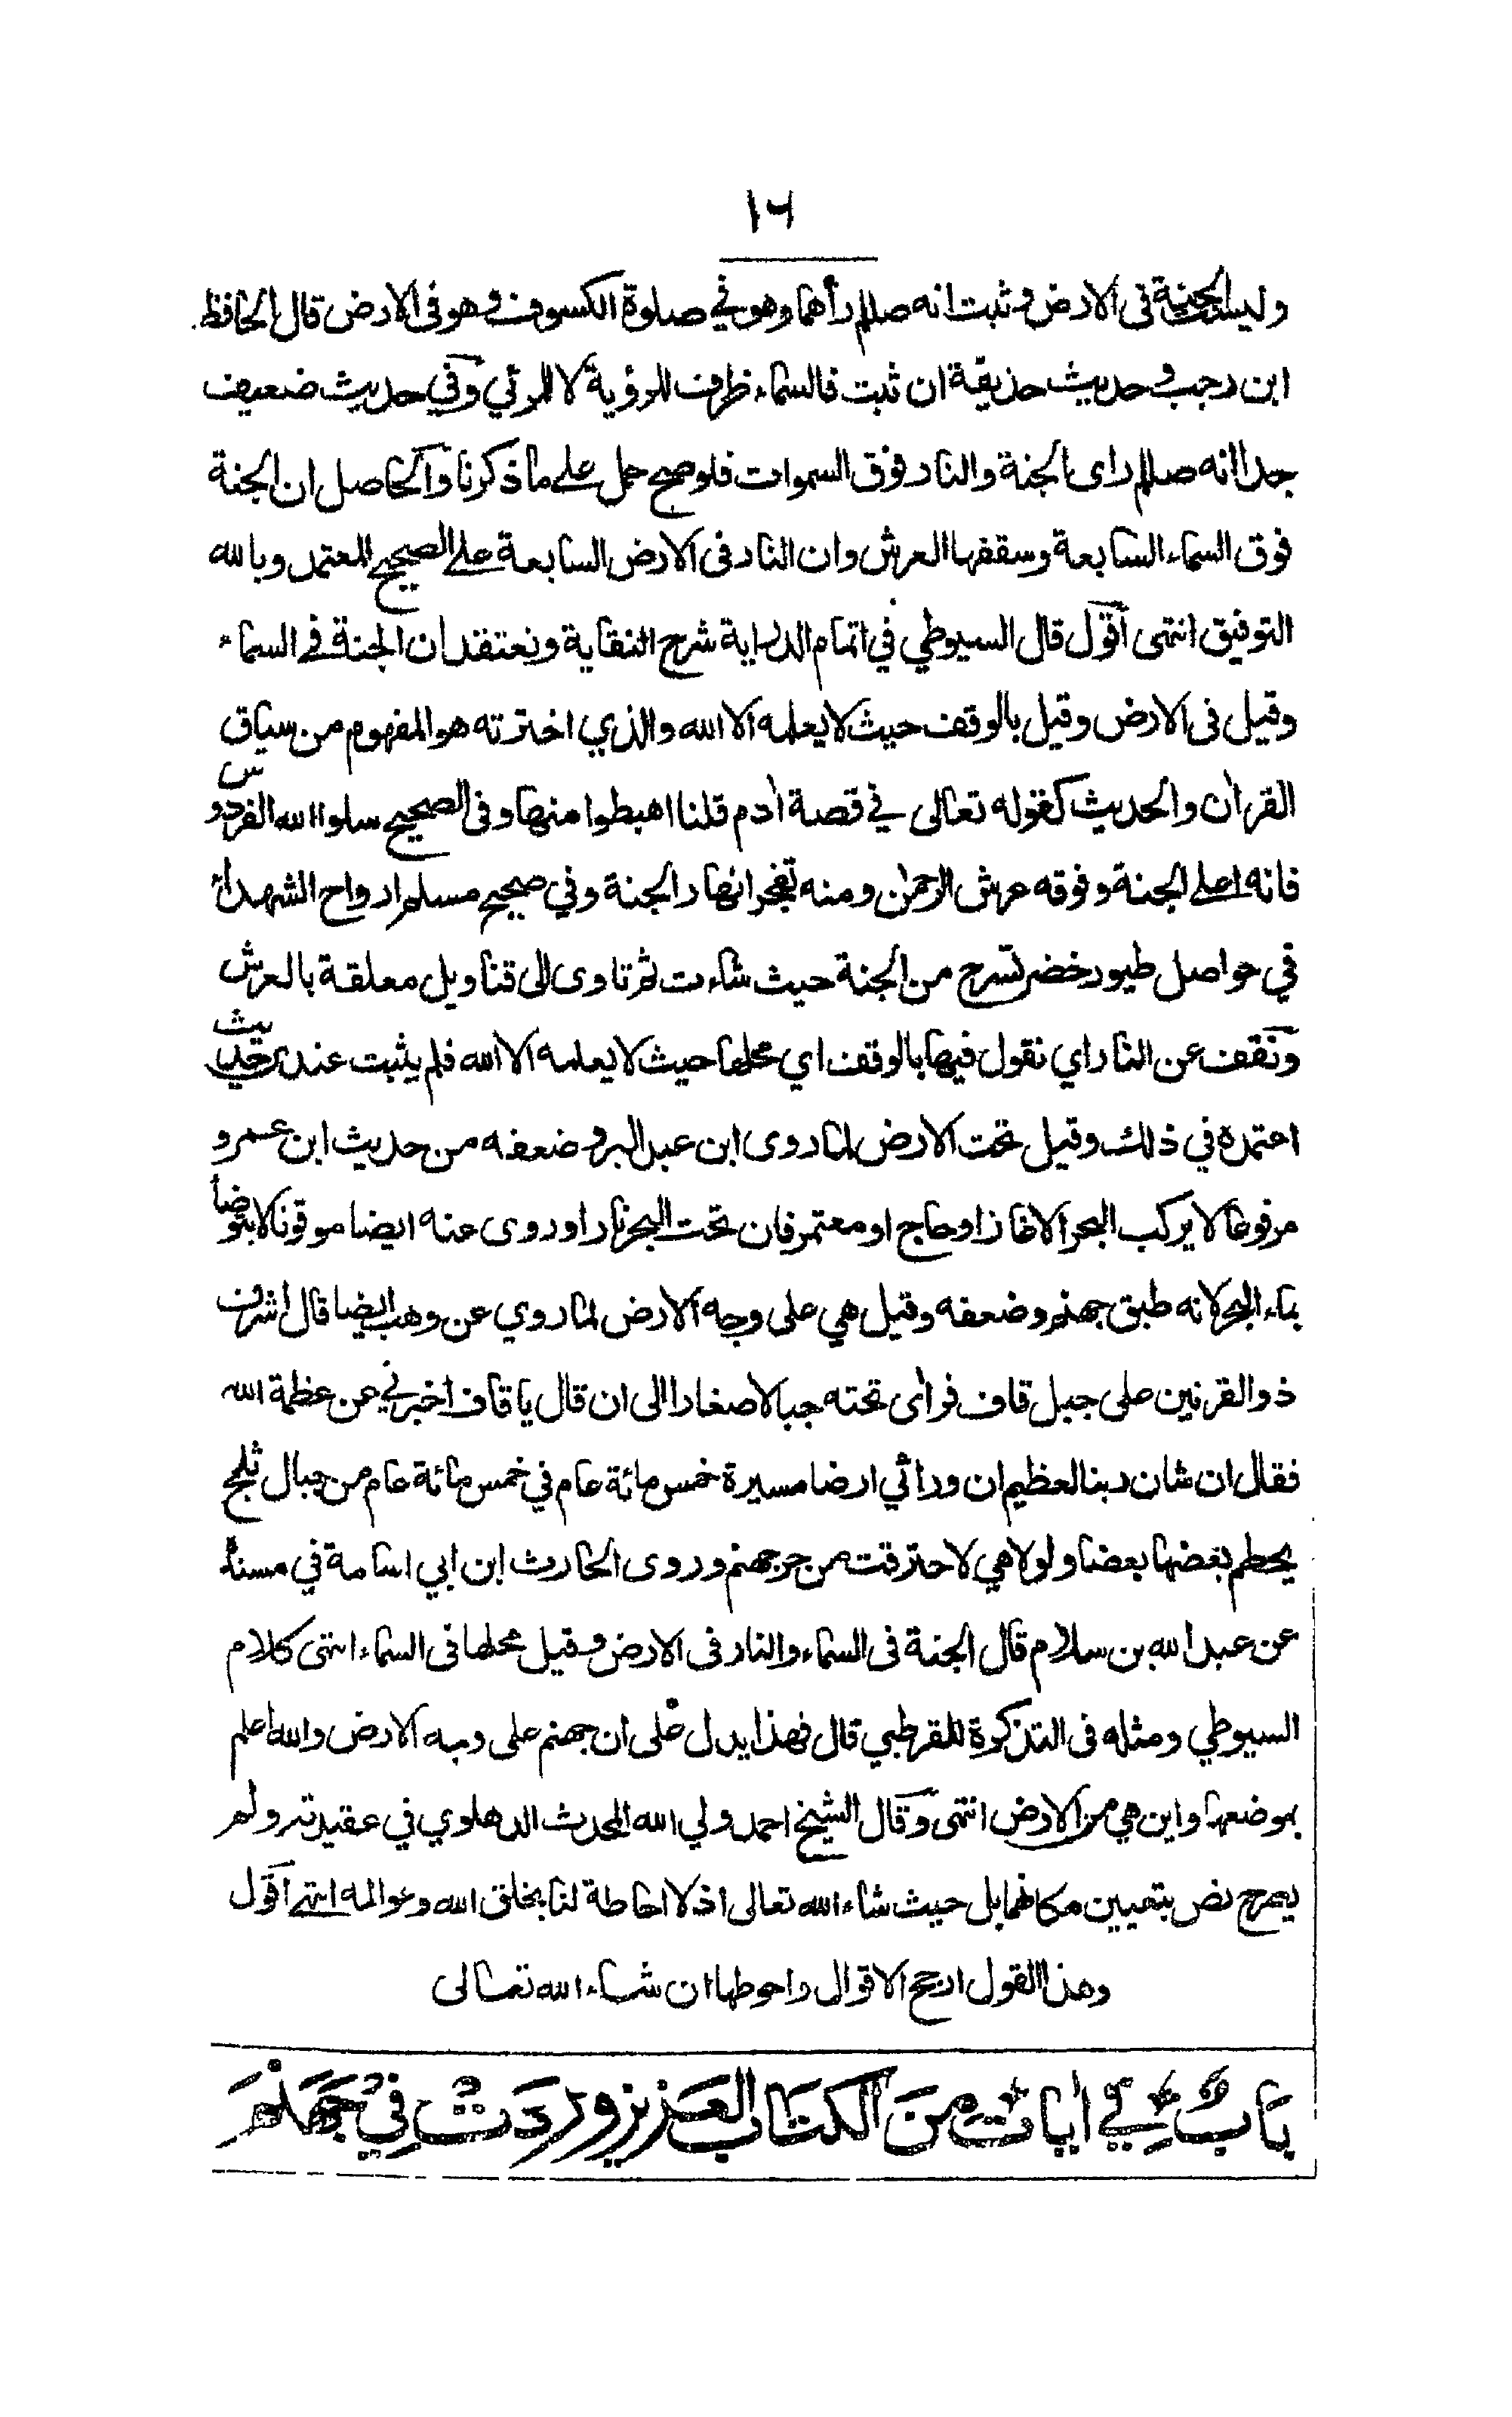 ١٦
وليست الجنة في الارض وثبت انه صللم رأهما وهو في صلوة الكسوف وهو في الارض قال الحافظ
ابن رجب وحديث حذيفة ان ثبت فالسماء ظرف للرؤية لا للمرئي وفي حديث ضعيف
جدا انه صللم راى الجنة والنار فوق السموات فلو صح حمل على ما ذكرنا والحاصل ان الجنة
فوق السماء السابعة وسقفها العرش وان النار في الارض السابعة على الصحيح المعتمد وبالله
التوفيق انتهى اقول قال السيوطي في اتمام الدراية شرح النقاية ونعتقد ان الجنة في السماء
وقيل في الارض وقيل بالوقف حيث لا يعلمه الا الله والذي اخترته هو المفهوم من سياق
القرأن والحديث كقوله تعالى في قصة أدم قلنا اهبطوا منها وفي الصحيح سلوا الله الفردوس
فانه اعلى الجنة وفوقه عرش الرحمن ومنه تفجر انهار الجنة وفي صحيح مسلم ارواح الشهداء
في حواصل طيور خضر تسرح من الجنة حيث شاءت ثم تاوى الى قناديل معلقة بالعرش
ونقف عن النار اي نقول فيها بالوقف اي محلها حيث لا يعلمه الا الله فلم يثبت عندي حديث
اعتمده في ذلك وقيل تحت الارض لما روى ابن عبد البر وضعفه من حديث ابن عمرو
مرفوعا لا يركب البحر الا غاز او حاج او معتمر فان تحت البحر نارا وروى عنه ايضا موقوفا لا يتوضأ
بماء البحر لانه طبق جهنم وضعفه وقيل هي على وجه الارض لما روي عن وهب ايضا قال اشرف
ذو القرنين على جبل قاف فرأى تحته جبالا صغارا الى ان قال يا قاف اخبرني عن عظمة الله
فقال ان شان ربنا لعظيم ان ورائي ارضا مسيرة خمس مائة عام في خمس مائة عام من جبال ثلج
يحطم بعضها بعضا ولولا هي لاحترقت من حر جهنم وروى الحارث ابن ابي اسامة في مسنده
عن عبد الله بن سلام قال الجنة في السماء والنار في الارض وقيل محلها في السماء انتهى كلام
السيوطي ومثله في التذكرة للقرطبي قال فهذا يدل على ان جهنم على وجه الارض والله اعلم
بموضعها واين هي من الارض انتهى وقال الشيخ احمد ولي الله المحدث الدهلوي في عقيدته ولم
يصرح نص بتعيين مكانهما بل حيث شاء الله تعالى اذ لا احاطة لنا بخلق الله وعوالمه انتهى اقول
وهذا القول ارجح الاقوال واحوطها ان شاء الله تعالى
بَابٌ فِي أيات مِنَ الكتَاب العَزيز وردَت فِي جَهَنَّمَ